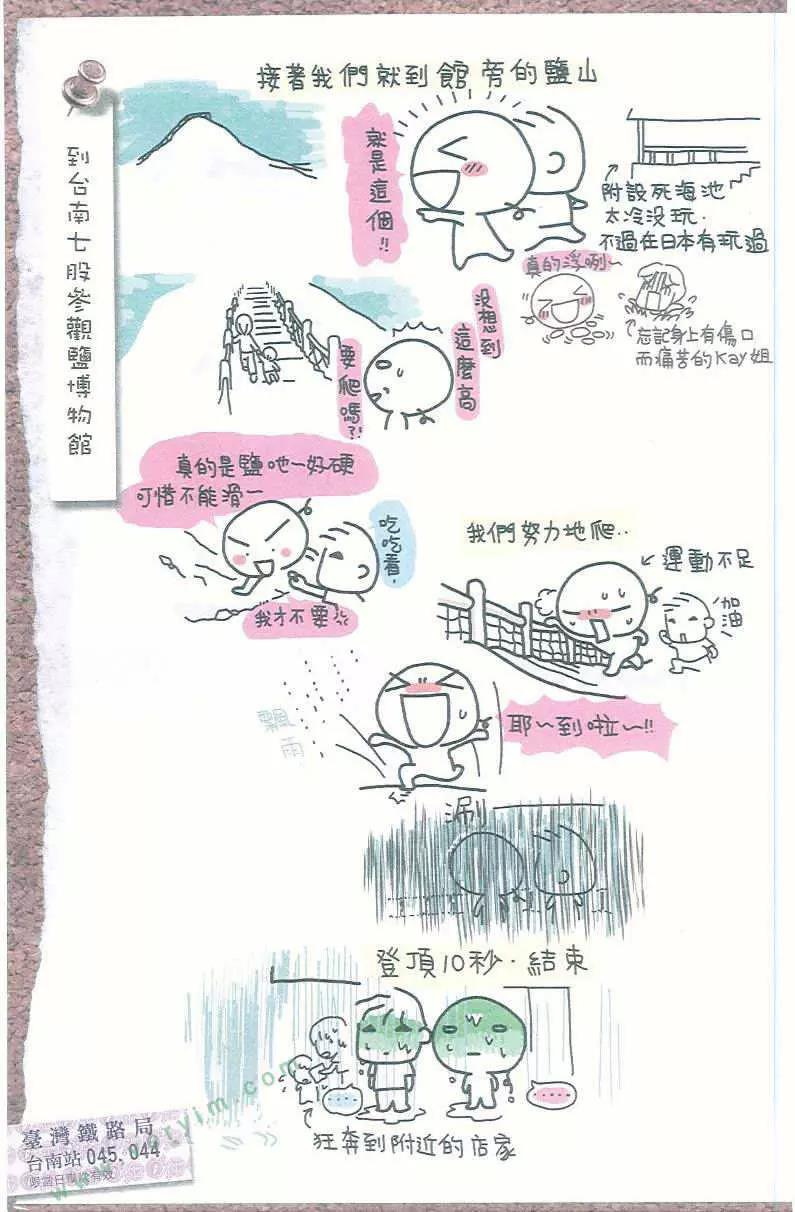 到台南七股參觀鹽博物館
接著我們就到館旁的鹽山
就是這個!!
附設死海池
太冷沒玩.
不過在日本有玩過
真的浮咧~
忘記身上有傷口
而痛苦的Kay姐
沒想到
這麼高
要爬嗎?!
真的是鹽吔~好硬
可惜不能滑~
吃吃看.
我才不要
我們努力地爬..
運動不足
加油
耶~到啦~!!
飄雨
涮
登頂10秒.結束
狂奔到附近的店家
臺灣鐵路局
台南站 045. 044